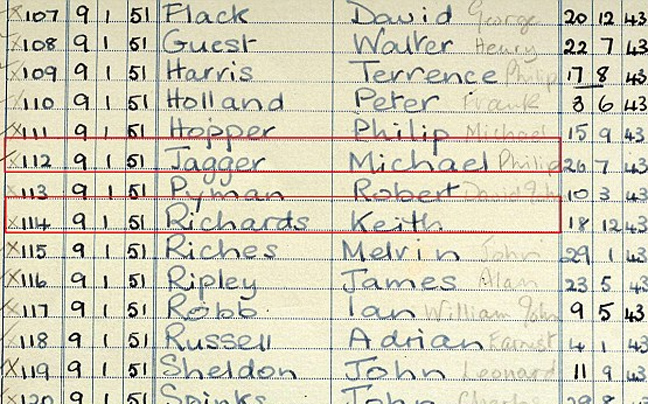 107 9 1 51 Flack David George 20 12 43
108 9 1 51 Guest Walter Henry 22 7 43
109 9 1 51 Harris Terrence Philip 17 8 43
110 9 1 51 Holland Peter Frank 3 6 43
111 9 1 51 Hopper Philip Michael 15 9 43
112 9 1 51 Jagger Michael Philip 26 7 43
113 9 1 51 Pyman Robert David John 10 3 43
114 9 1 51 Richards Keith 18 12 43
115 9 1 51 Riches Melvin John 29 1 43
116 9 1 51 Ripley James Alan 23 5 43
117 9 1 51 Robb Ian William John 9 5 43
118 9 1 51 Russell Adrian Earnest 4 1 43
119 9 1 51 Sheldon John Leonard 11 9 43
120 9 1 51 Spinks John Charles 29 8 43